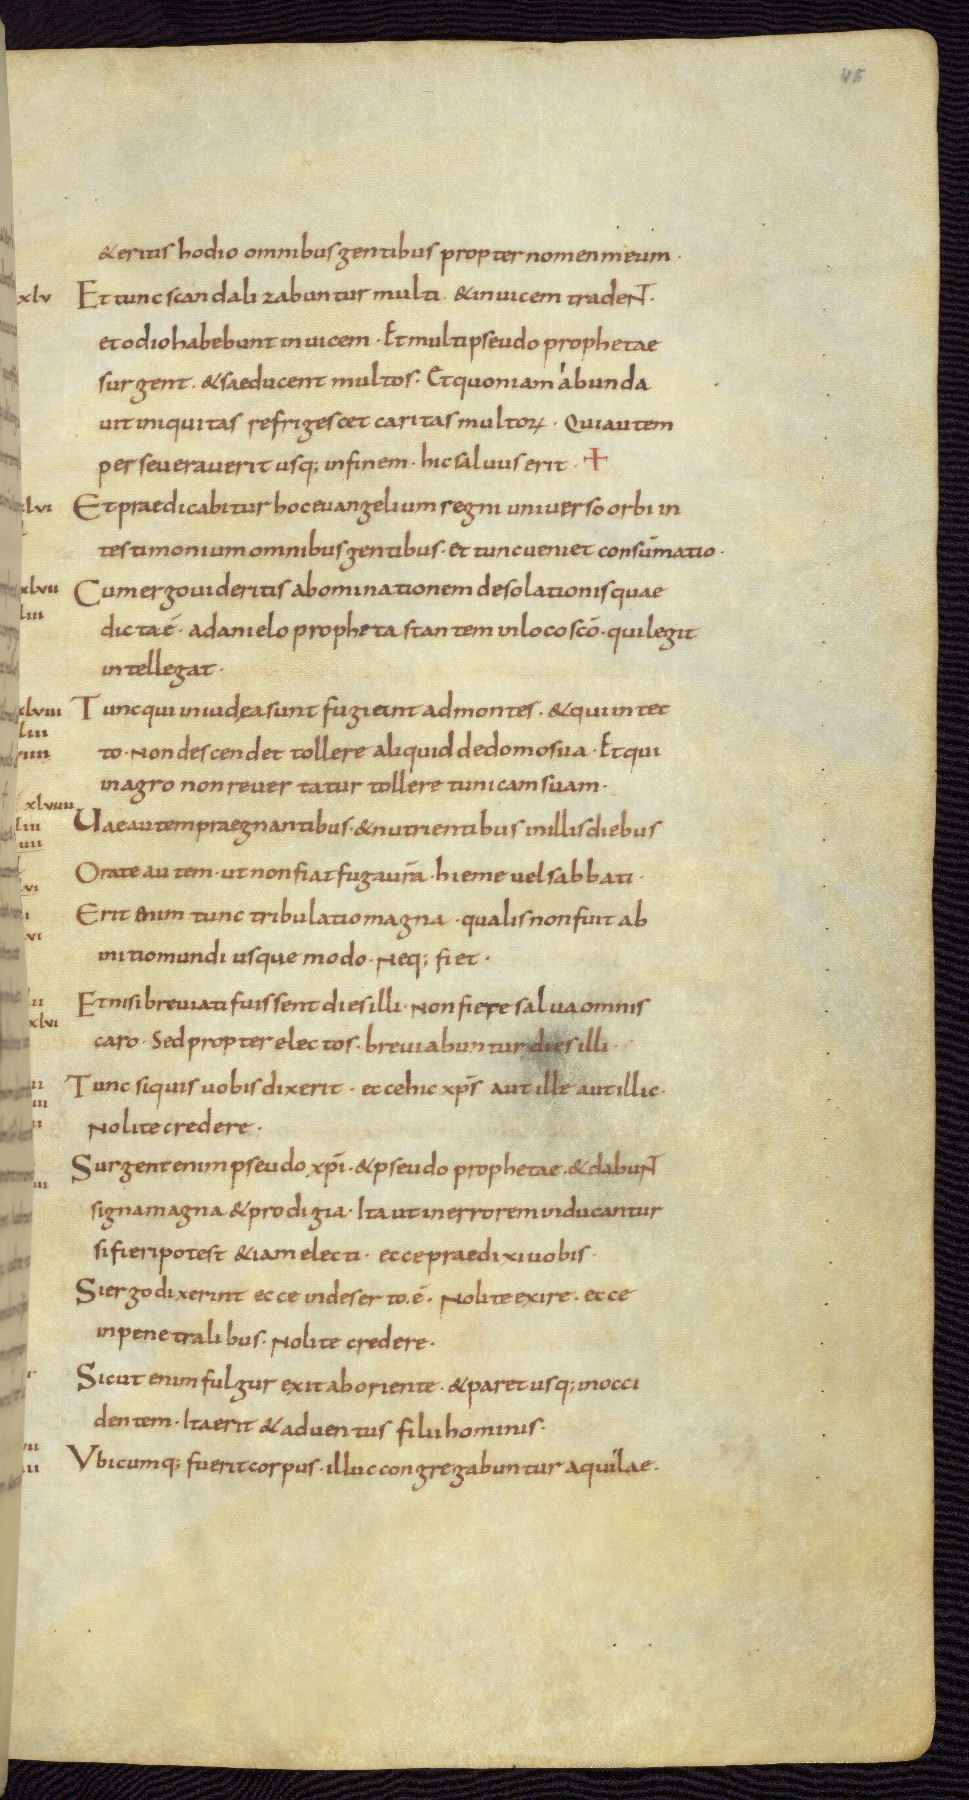 45
&eritis hodio omnibus gentibus propter nomen meum ·
xlv Et tunc scandalizabuntur multi · & inuicem tradeNT ·
et odio habebunt inuicem · Et multi pseudo prophetae
surgent · & saeducent multos · Et quoniam abunda
uit iniquitas refrigescet caritas multoꝝ · Qui autem
perseverauerit usq; in finem · hic saluus erit · +
xlvi Et praedicabitur hoc euangelium regni universo orbi in
testimonium omnibus gentibus · et tunc ueniet consūmatio ·
xlvii Cum ergo uideritis abominationem desolationis quae
liii
dicta ē · a danielo propheta stantem in loco scō · qui legit
intellegat ·
xlviii Tunc qui in iudea sunt fugieint ad montes · & qui in tec
liii
to · Non descendet tollere aliquid de domo sua · Et qui
in agro non revertatur tollere tunicam suam ·
xlviiii
Uae autem praegnantibus · & nutrientibus in illis diebus
Orate autem · ut non fiat fuga urā · hieme uel sabbati ·
Erit enim tunc tribulatio magna · qualis non fuit ab
initio mundi usque modo · Neq; fiet ·
Et nisi breviati fuissent dies illi · Non fiete salua omnis
xlvi
caro · Sed propter electos · breviabuntur dies illi ·
Tunc siquis uobis dixerit · ecce hic xp̄s aut ille aut illic ·
Nolite credere ·
Surgent enim pseudo xp̄i · & pseudo prophetae · & dabuNT
signa magna & prodigia · Ita ut in errorem inducantur
si fieri potest & iam electi · ecce praedixi uobis ·
Si ergo dixerint ecce in deserto · ē · Nolite exire · ecce
in penetralibus · Nolite credere ·
Sicut enim fulgur exit ab oriente · & paret usq; in occi
dentem · Ita erit & aduentus filii hominis ·
Vbicumq; fuerit corpus · illuc congregabuntur aquilae ·